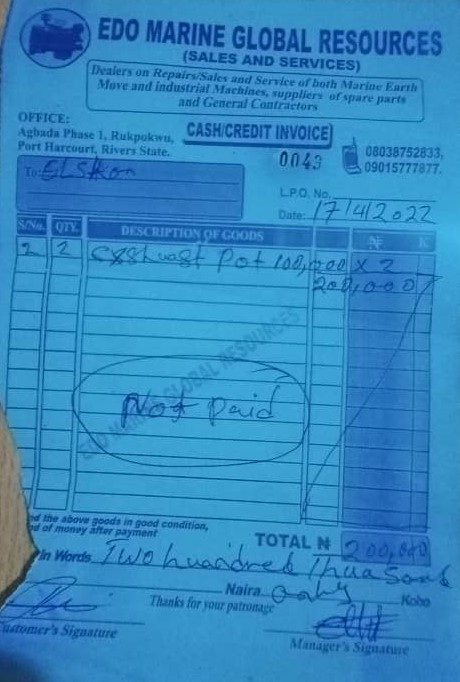 EDO MARINE GLOBAL RESOURCES
(SALES AND SERVICES)
Dealers on Repairs/Sales and Service of both Marine Earth
Move and industrial Machines, suppliers of spare parts
and General Contractors
OFFICE:
Agbada Phase 1, Rukpokwu,
Port Harcourt, Rivers State.
CASH/CREDIT INVOICE
0043
08038752833,
09015777877.
To:
L.P.O. No.
Date: 17/4/2022
S/No. QTY. DESCRIPTION OF GOODS ₦ K
2 2 Exshuast Pot 100,000 x 2
200,000
EDO MARINE GLOBAL RESOURCES
Not paid
d the above goods in good condition,
d of money after payment
TOTAL ₦ 200,000
in Words Two hundred Thuasand
Naira Only Kobo
Thanks for your patronage
ustomer's Signature
Manager's Signature